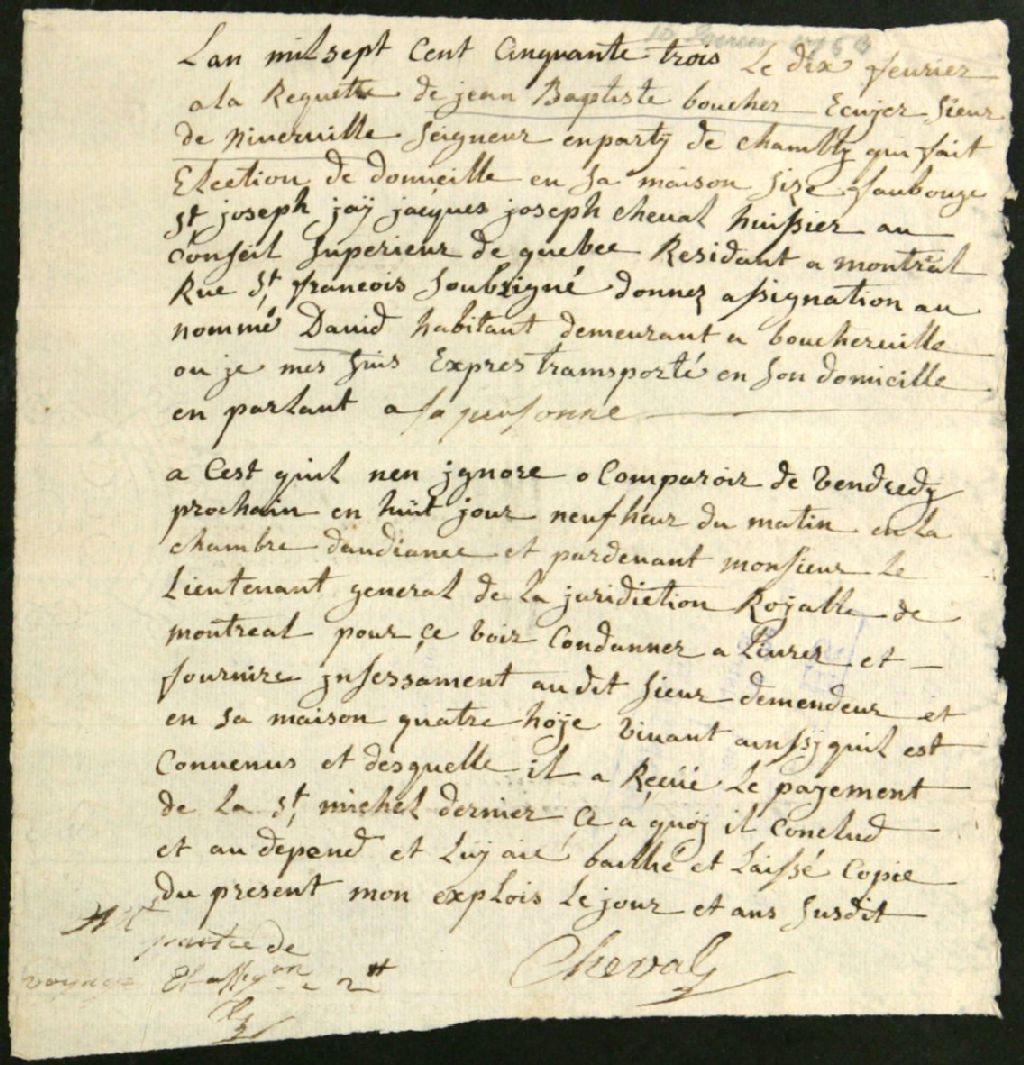 Lan mil sept Cent Cinquante trois Le dix feurier
a la Requette de jean Baptiste boucher Ecujer Sieur
de Niuerville Seigneur en party de chambly qui fait
Election de domicille en sa maison size faubouge
St joseph jaÿ jacques joseph cheval huissier au
Conseil Superieur de quebec Residant a montreal
Rue St francois soubsigné donnez assignation au
nommé David habitant demeurant a boucherville
ou je mes suis Expres transporté en son domicille
en parlant a sa personne
a Cest quil nen jgnore o Comparoir de Vendredy
prochain en huit jour neuf heur du matin en la
chambre daudiance et pardeuant monsieur le
Lieutenant general de la juridiction Rojalle de
montreal pour çe Voir Condanner a Liurer et
fournire jnsessament au dit sieur demendeur et
en sa maison quatre hoje Viuant ainssy quil est
Conuenus et desquelle il a Reçüe le payement
de la St michel dernier Ce a quoy il Conclud
et au depend et Luy aié baillié et Laissé Copie
Du present mon explois Le jour et ans susdit
partie de
voyage Et assign 2
Cheval